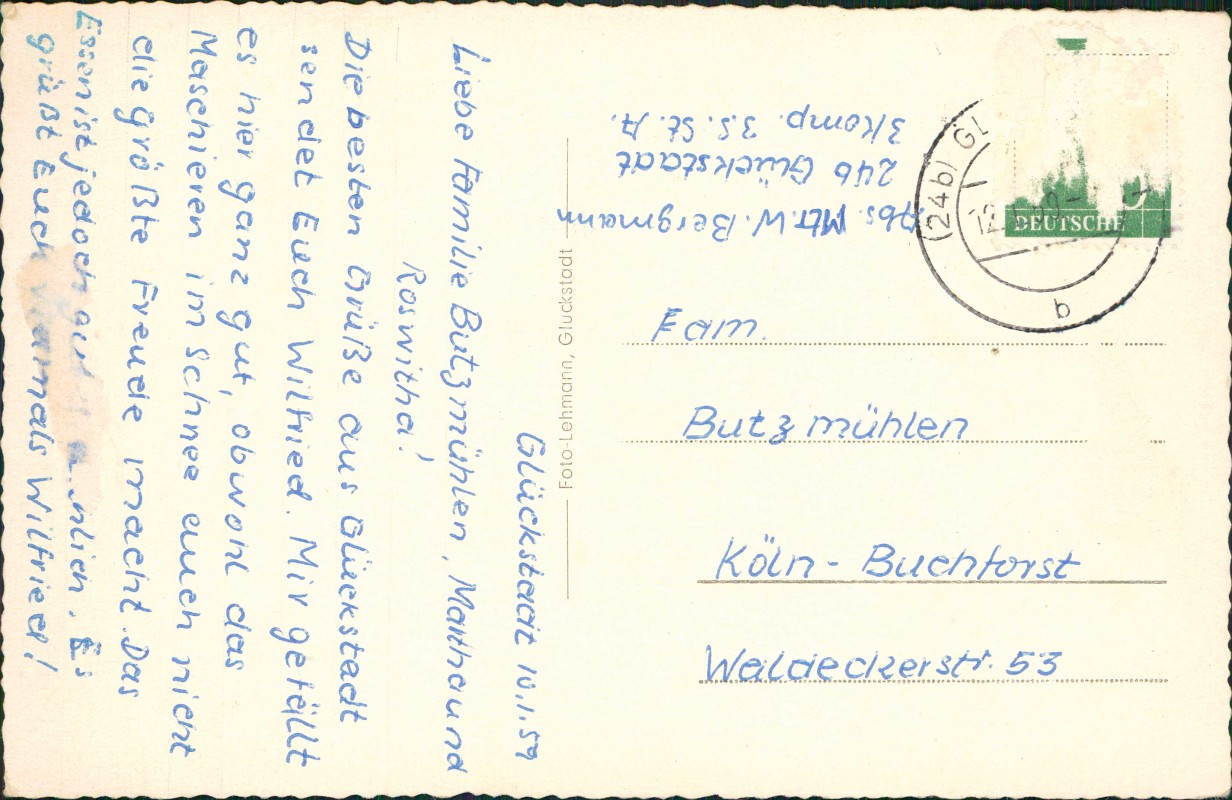 Glückstadt 10.1.59
Liebe Familie Butzmühlen, Martha und
Roswitha!
Die besten Grüße aus Glückstadt
sendet Euch Wilfried. Mir gefällt
es hier ganz gut, obwohl das
Maschieren im Schnee auch nicht
die größte Freude macht. Das
Essen ist jedoch gut
Es
grüßt Euch Wilfried!
Abs. Mtr. W. Bergmann
24b Glückstadt
3 Komp. 3S. St. A.
Foto-Lehmann, Glückstadt
(24b) GL
b
DEUTSCHE
Fam.
Butzmühlen
Köln - Buchforst
Waldeckerstr. 53